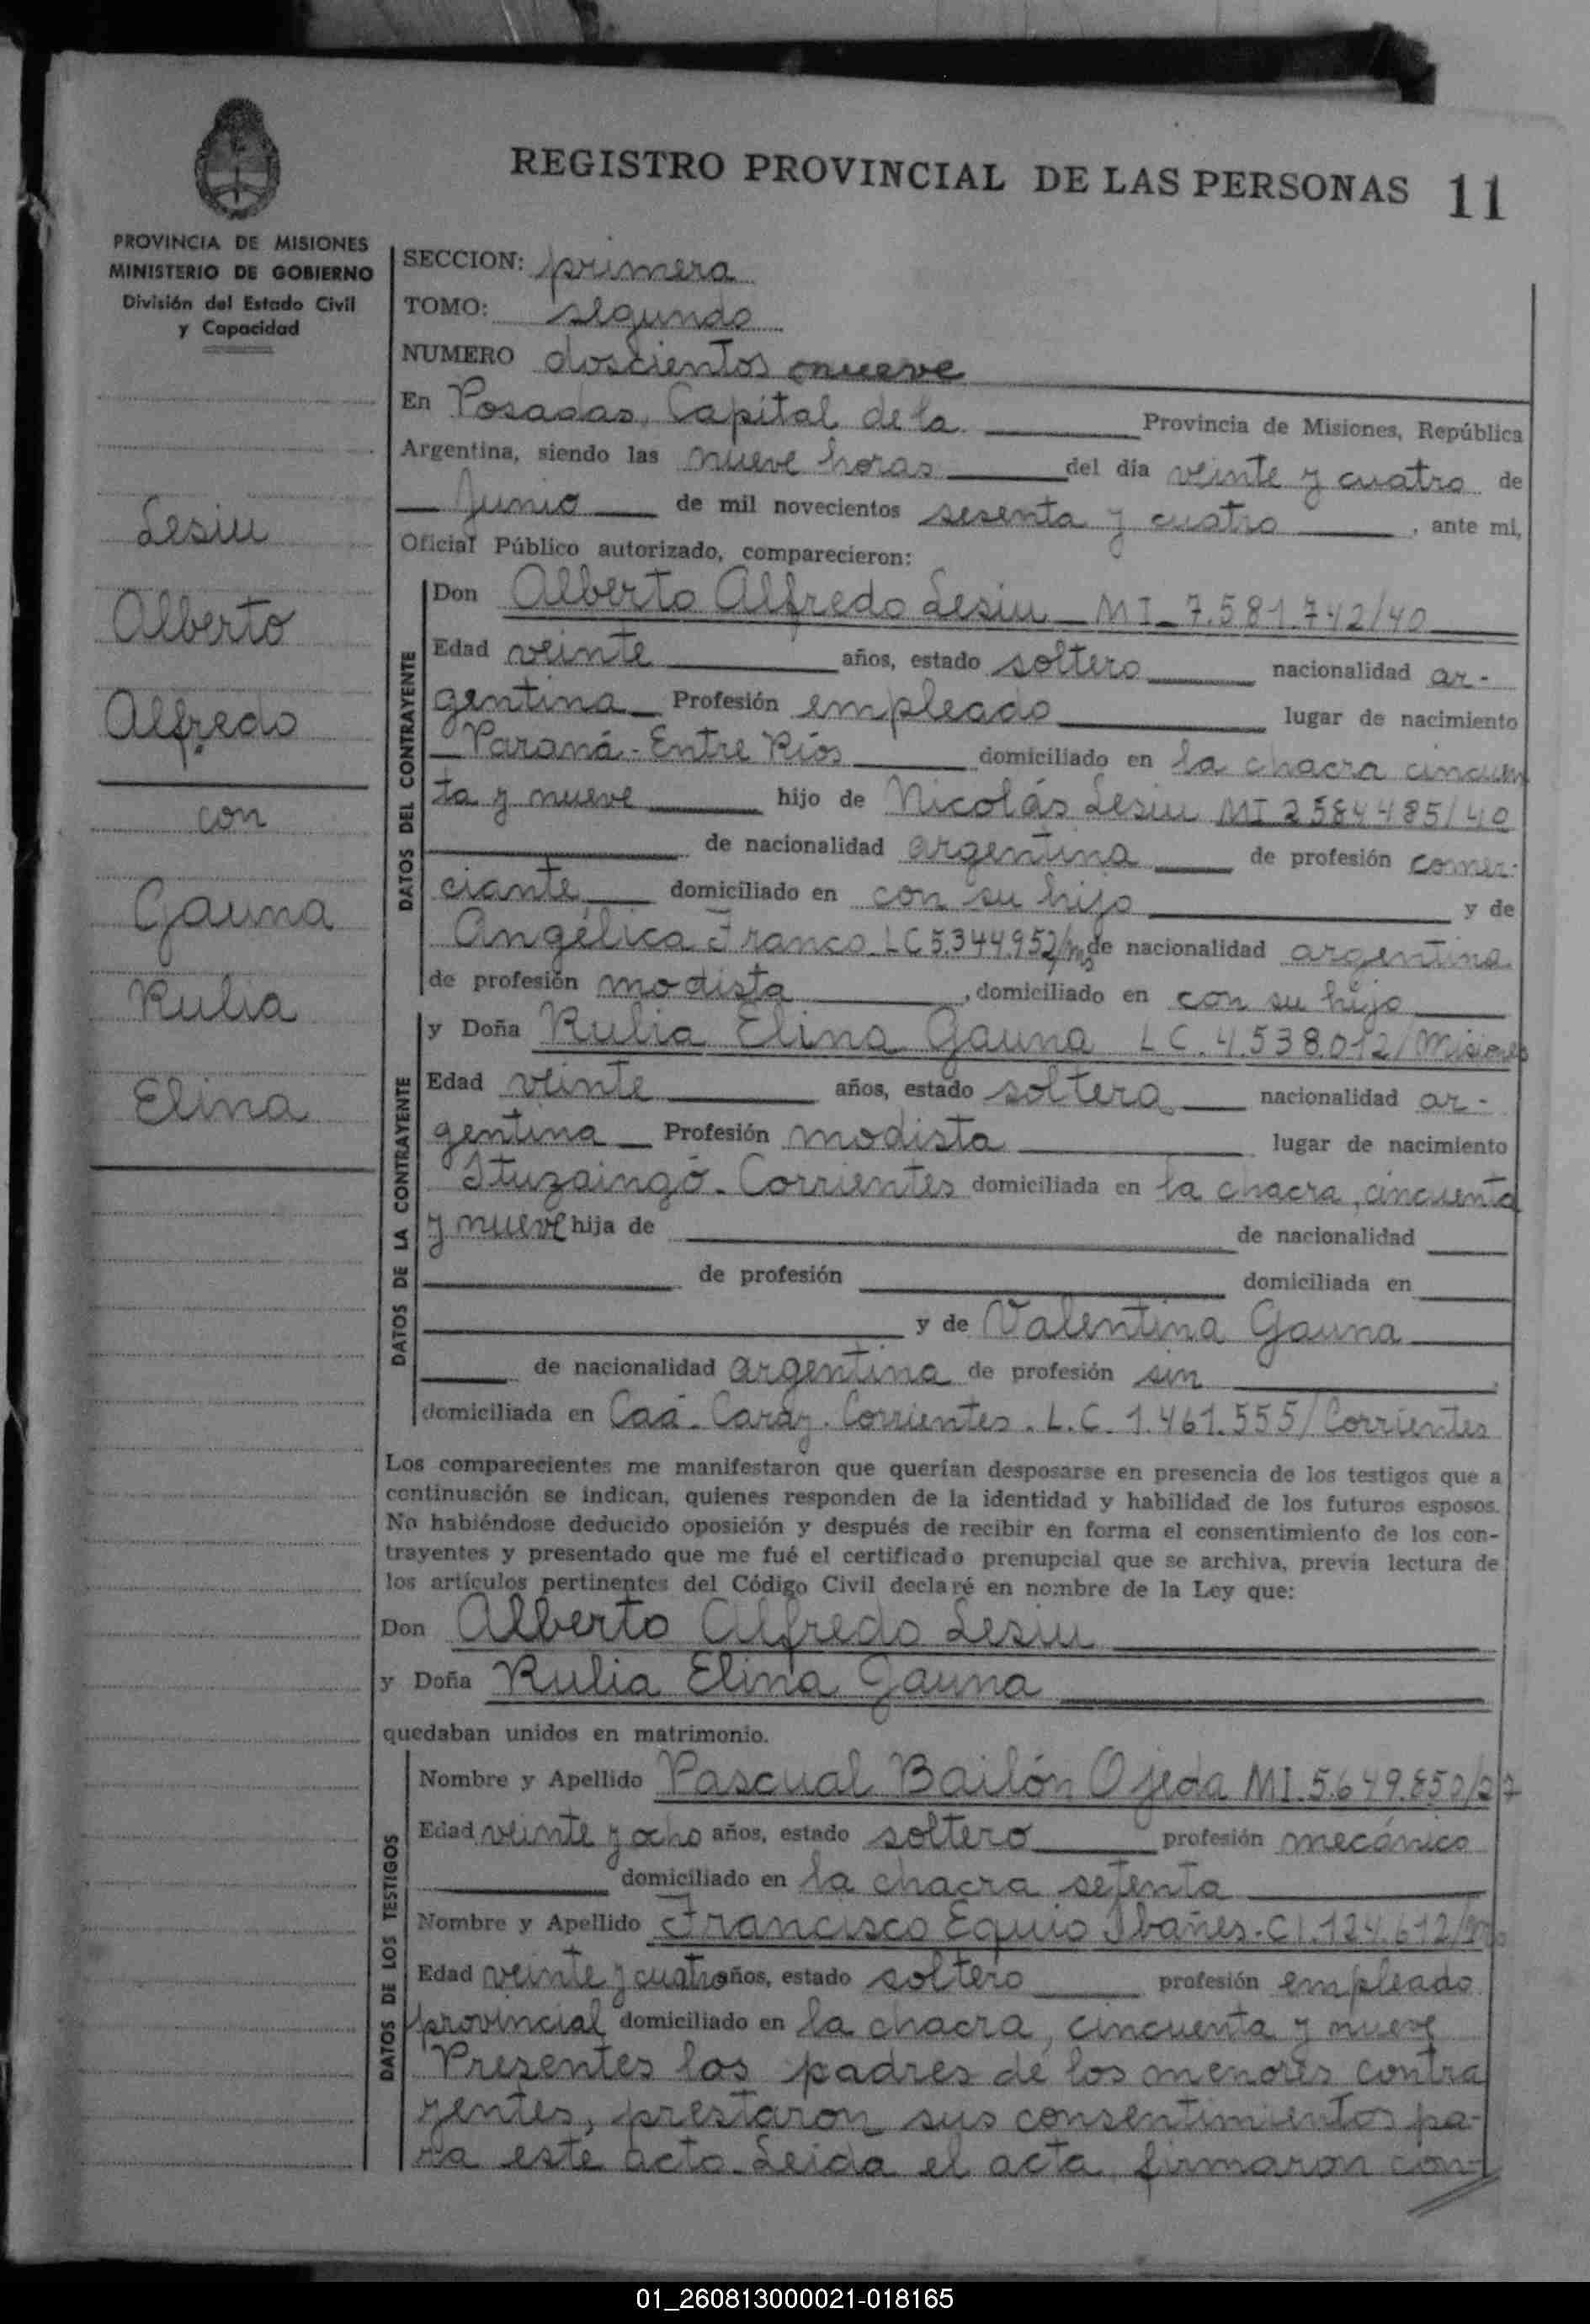 REGISTRO PROVINCIAL DE LAS PERSONAS 11
PROVINCIA DE MISIONES
MINISTERIO DE GOBIERNO
División del Estado Civil
y Capacidad
Lesiu
Alberto
Alfredo
con
Gauna
Rulia
Elina
SECCION: primera
TOMO: segundo
NUMERO doscientos nueve
En Posadas, Capital de la Provincia de Misiones, República
Argentina, siendo las nueve horas del día veinte y cuatro de
Junio de mil novecientos sesenta y cuatro, ante mi,
Oficial Público autorizado, comparecieron:
DATOS DEL CONTRAYENTE
Don Alberto Alfredo Lesiu MI 7.581.742/40
Edad veinte años, estado soltero nacionalidad ar-
gentina Profesión empleado lugar de nacimiento
Paraná - Entre Ríos domiciliado en la chacra cincuen
ta y nueve hijo de Nicolás Lesiu MI 2584485/40
de nacionalidad argentina de profesión comer-
ciante domiciliado en con su hijo y de
Angélica Franco LC 5.344.952/ms de nacionalidad argentina
de profesión modista, domiciliado en con su hijo
DATOS DE LA CONTRAYENTE
y Doña Rulia Elina Gauna LC. 4.538.012/Misiones
Edad veinte años, estado soltera nacionalidad ar-
gentina Profesión modista lugar de nacimiento
Ituzaingó - Corrientes domiciliada en la chacra, cincuenta
y nueve hija de de nacionalidad
de profesión domiciliada en
y de Valentina Gauna
de nacionalidad argentina de profesión sin
domiciliada en Caá - Caray. Corrientes. L.C. 1.461.555/Corrientes
Los comparecientes me manifestaron que querían desposarse en presencia de los testigos que a
continuación se indican, quienes responden de la identidad y habilidad de los futuros esposos.
No habiéndose deducido oposición y después de recibir en forma el consentimiento de los con-
trayentes y presentado que me fué el certificado prenupcial que se archiva, previa lectura de
los artículos pertinentes del Código Civil declaré en nombre de la Ley que:
Don Alberto Alfredo Lesiu
y Doña Rulia Elina Gauna
quedaban unidos en matrimonio.
DATOS DE LOS TESTIGOS
Nombre y Apellido Pascual Bailón Ojeda MI. 5.649.850/27
Edad veinte y ocho años, estado soltero profesión mecánico
domiciliado en la chacra setenta
Nombre y Apellido Francisco Equio Ibañes. C I. 124.612/
Edad veinte y cuatro años, estado soltero profesión empleado
provincial domiciliado en la chacra, cincuenta y nueve
Presentes los padres de los menores contra
yentes, prestaron sus consentimientos pa-
ra este acto. Leida el acta, firmaron con-
01_260813000021-018165